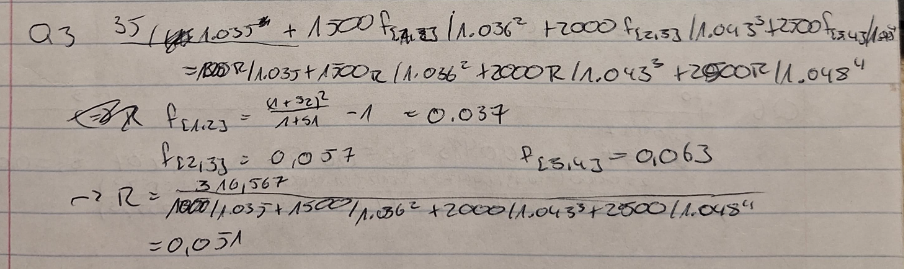 Q3 35/1.035 + 1500 f[1,2]/1.036² + 2000 f[2,3]/1.043³ + 2500 f[3,4]/1.048⁴
= 1000R/1.035 + 1500R/1.036² + 2000R/1.043³ + 2500R/1.048⁴
f[1,2] = (1+s2)²/1+s1 - 1 = 0.037
f[2,3] = 0,057 f[3,4] = 0,063
→ R = 316,567/1000/1.035 + 1500/1.036² + 2000/1.043³ + 2500/1.048⁴
= 0,051